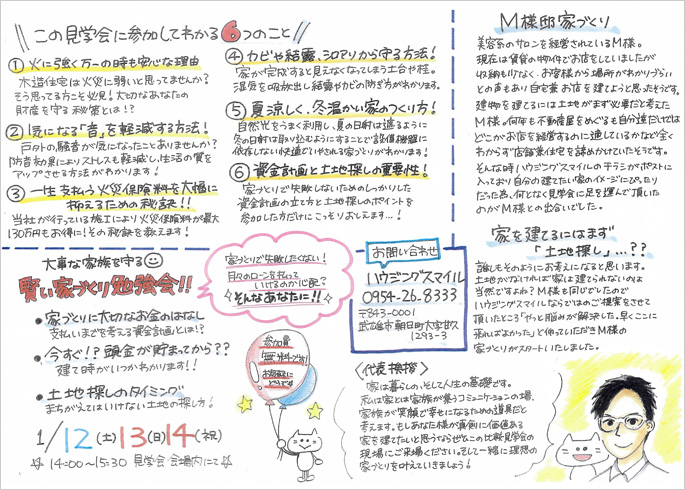 この見学会に参加してわかる6つのこと
① 火に強く万一の時も安心な理由
木造住宅は火災に弱いと思ってませんか?
そう思ってる方こそ必見!大切なあなたの
財産を守る秘策とは!?
② 気になる「音」を軽減する方法!
戸外の騒音が気になったことありませんか?
防音効果によりストレスも軽減し、生活の質を
アップさせる方法がわかります!
③ 一生支払う火災保険料を大幅に
抑えるための秘訣!!
当社が行っている施工により火災保険料が最大
130万もお得に!その秘訣を教えます!
④ カビや結露、シロアリから守る方法!
家が完成すると見えなくなってしまう土台や柱。
湿気を吸放出し結露やカビの防ぎ方がわかります。
⑤ 夏涼しく、冬温かい家のつくり方!
自然光をうまく利用し、夏の日射は遮るように
冬の日射は取り込むようにすることで設備機器に
依存しない快適でいやされる家づくりとがわかります!
⑥ 資金計画と土地探しの重要性!
家づくりで失敗しないためのしっかりした
資金計画の立て方と土地探しのポイントを
参加した方だけにこっそりおしえます…!
M様邸家づくり
美容系のサロンを経営されているM様。
現在は賃貸の物件でお店をしていましたが
収納も少なく、お客様から場所がわかりづらい
との声もあり自宅兼お店を建てようと思ったそうです。
建物を建てるには土地がまず必要だと考えた
M様。何年も不動産をめぐるも自分達だけでは
どこがお店を経営するのに適しているかなど全く
わからず店舗兼住宅を諦めかけていたそうです。
そんな時ハウジングスマイルのチラシがポストに
入っており自分の建てたい家のイメージにぴったり
だった為、何となく見学会に足を運んで頂いた
のがM様との出会いでした。
家を建てるにはまず
「土地探し」…??
誰もそのようにお考えになると思います。
土地がなければ家は建てられないのは
当然ですよね?M様も同じでしたので
ハウジングスマイルならではのご提案をさせて
頂いたところ「やっと悩みが解決した。早くここに
来ればよかった」と仰っていただきM様の
家づくりがスタートいたしました。
大事な家族を守る
賢い家づくり勉強会!!
● 家づくりに大切なお金のはなし
支払いまでを考える資金計画とは!?
● 今すぐ!?頭金が貯まってから??
建て時がいつかわかります!!
● 土地探しのタイミング
まちがえてはいけない土地の探し方!
1/12(土)13(日)14(祝)
☆14:00~15:30 見学会会場内にて☆
家づくりで失敗したくない!
月々のローンを払って
いけるのか心配?
そんなあなたに!!
参加費
無料です!
お気軽に
どうぞ
お問い合わせ
ハウジングスマイル
0954-26-8333
〒843-0001
武雄市朝日町大字甘久
1293-3
〈代表挨拶〉
家は暮らしの、そして人生の基礎です。
私は家とは家族が集うコミュニケーションの場、
家族が笑顔で幸せになるための道具だと
考えます。もしあなた様が真剣に価値ある
家を建てたいと思うならぜひこの比較見学会の
現場にご来場ください。そして一緒に理想の
家づくりを叶えていきましょう!